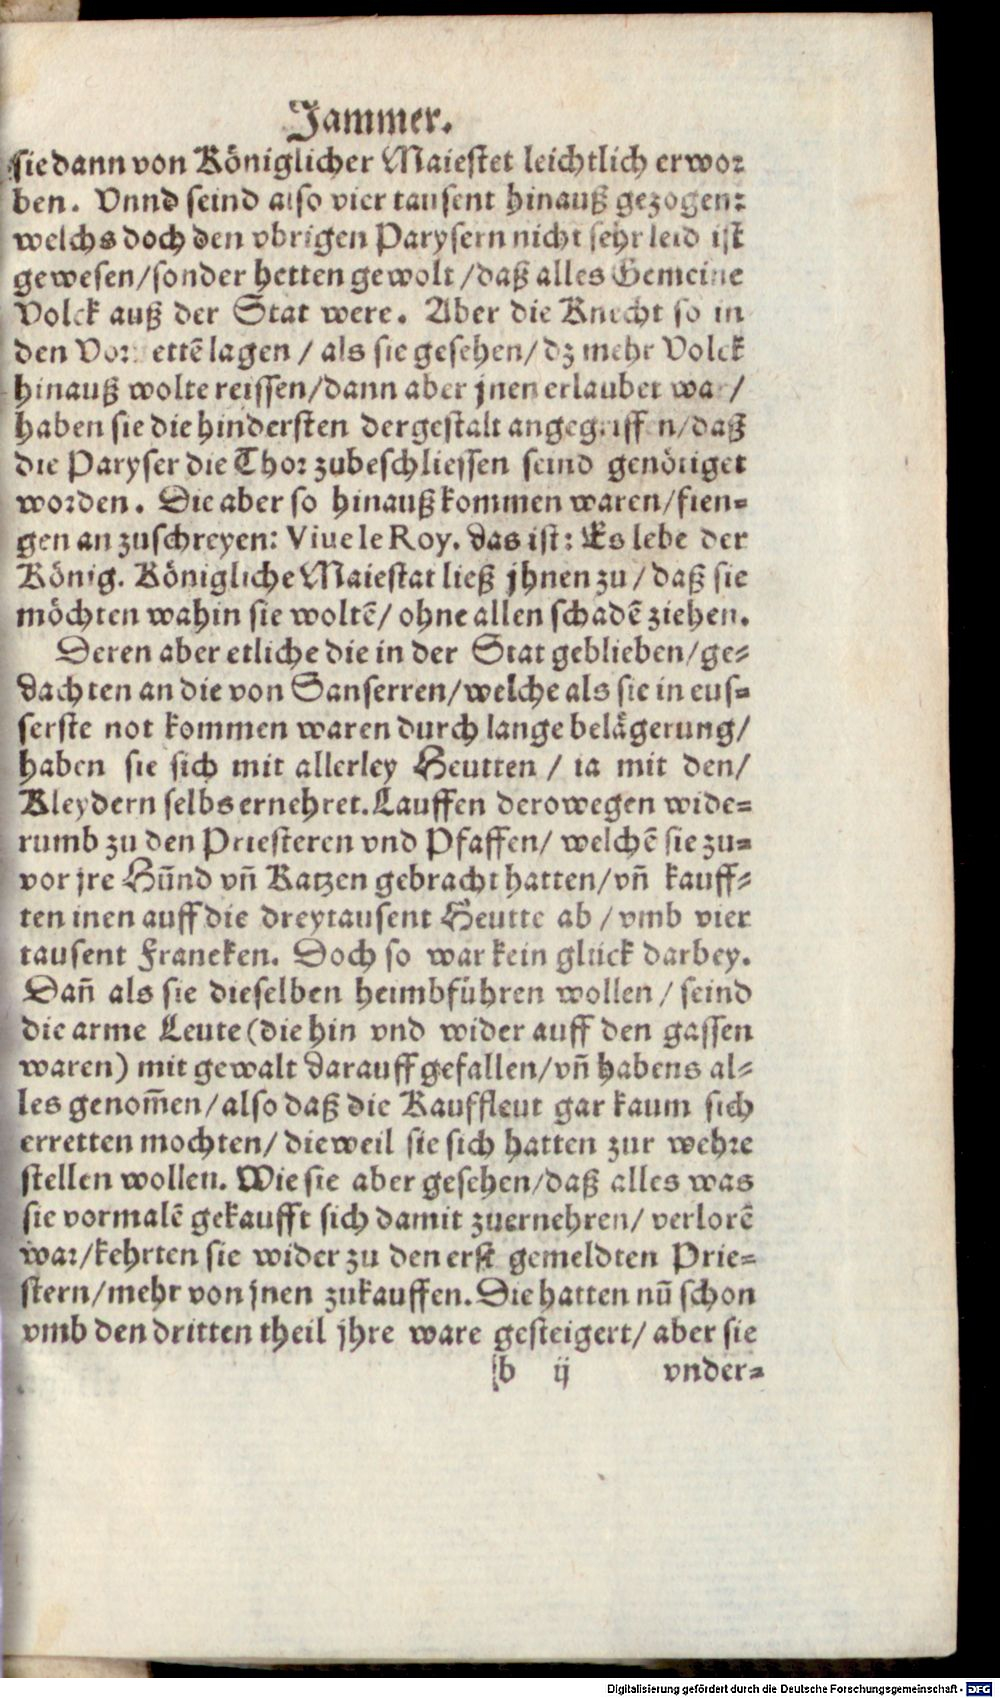 Jammer.
sie dann von Königlicher Maiestet leichtlich erwor
ben. Vnnd seind also vier tausent hinauß gezogen:
welchs doch den vbrigen Parysern nicht sehr leid ist
gewesen/sonder hetten gewolt/daß alles Gemeine
Volck auß der Stat were. Aber die Knecht so in
den lagen/ als sie gesehen/dz mehr Volck
hinauß wolte reissen/dann aber jnen erlaubet war/
haben sie die hindersten dergestalt angegriffen/daß
die Paryser die Thor zubeschliessen seind genötiget
worden. Die aber so hinauß kommen waren/fien-
gen an zuschreyen: Viue le Roy. das ist: Es lebe der
König. Königliche Maiestat ließ jhnen zu/daß sie
möchten wahin sie woltē/ ohne allen schadē ziehen.
Deren aber etliche die in der Stat geblieben/ge-
dachten an die von Sanserren/welche als sie in eus-
serste not kommen waren durch lange belägerung/
haben sie sich mit allerley Heutten/ ia mit den/
Kleydern selbs ernehret. Lauffen derowegen wide-
rumb zu den Priesteren vnd Pfaffen/ welchē sie zu-
vor jre Hūnd vn̄ Katzen gebracht hatten/vn̄ kauff-
ten inen auff die dreytausent Heutte ab/vmb vier
tausent Francken. Doch so war kein glück darbey.
Dan̄ als sie dieselben heimbführen wollen/ seind
die arme Leute (die hin vnd wider auff den gassen
waren) mit gewalt darauff gefallen/vn̄ habens al-
les genom̄en/also daß die Kauffleut gar kaum sich
erretten mochten/ dieweil sie sich hatten zur wehre
stellen wollen. Wie sie aber gesehen/daß alles was
sie vormalē gekaufft sich damit zuernehren/ verlorē
war/kehrten sie wider zu den erst gemeldten Prie-
stern/mehr von jnen zukauffen. Die hatten nū schon
vmb den dritten theil jhre ware gesteigert/ aber sie
b ij vnder-
Digitalisierung gefördert durch die Deutsche Forschungsgemeinschaft - DFG